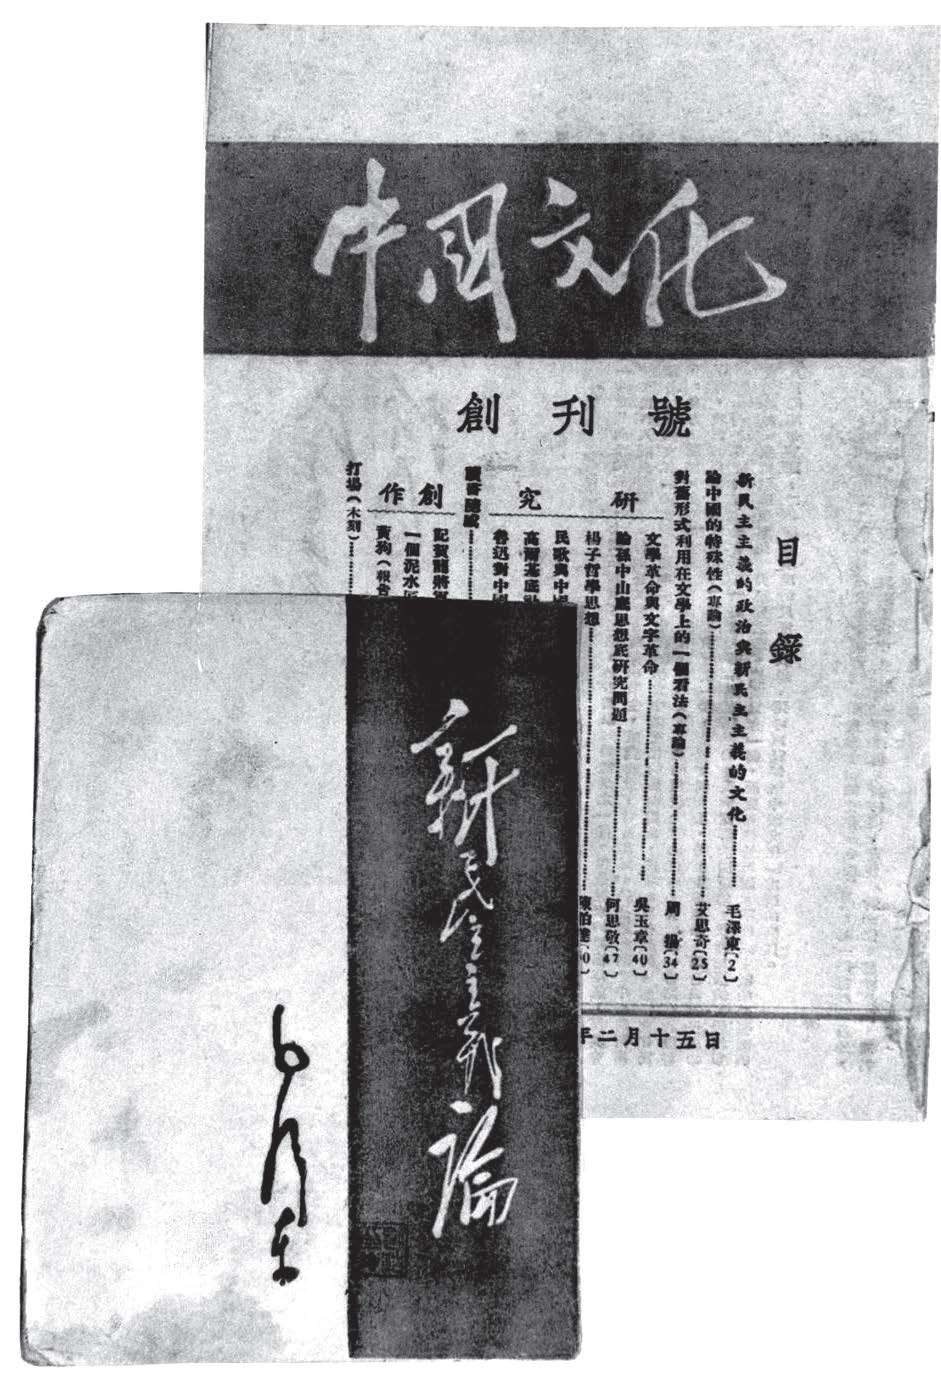 中國文化
創刊號
目錄
新民主主義的政治與新民主主義的文化……毛澤東〔2〕
論中國的特殊性(專論)……艾思奇〔25〕
對舊形式利用在文學上的一個看法(專論)……周揚〔34〕
研究
文學革命與文字革命……吳玉章〔40〕
論孫中山底思想底研究問題……何思敬〔47〕
楊子哲學思想……陳伯達
民歌與中
高爾基底社
魯迅對中
創作
記賀龍將軍
一個泥水匠
黃狗(報告
打場(木刻)……
年二月十五日
新民主主義論
毛澤東